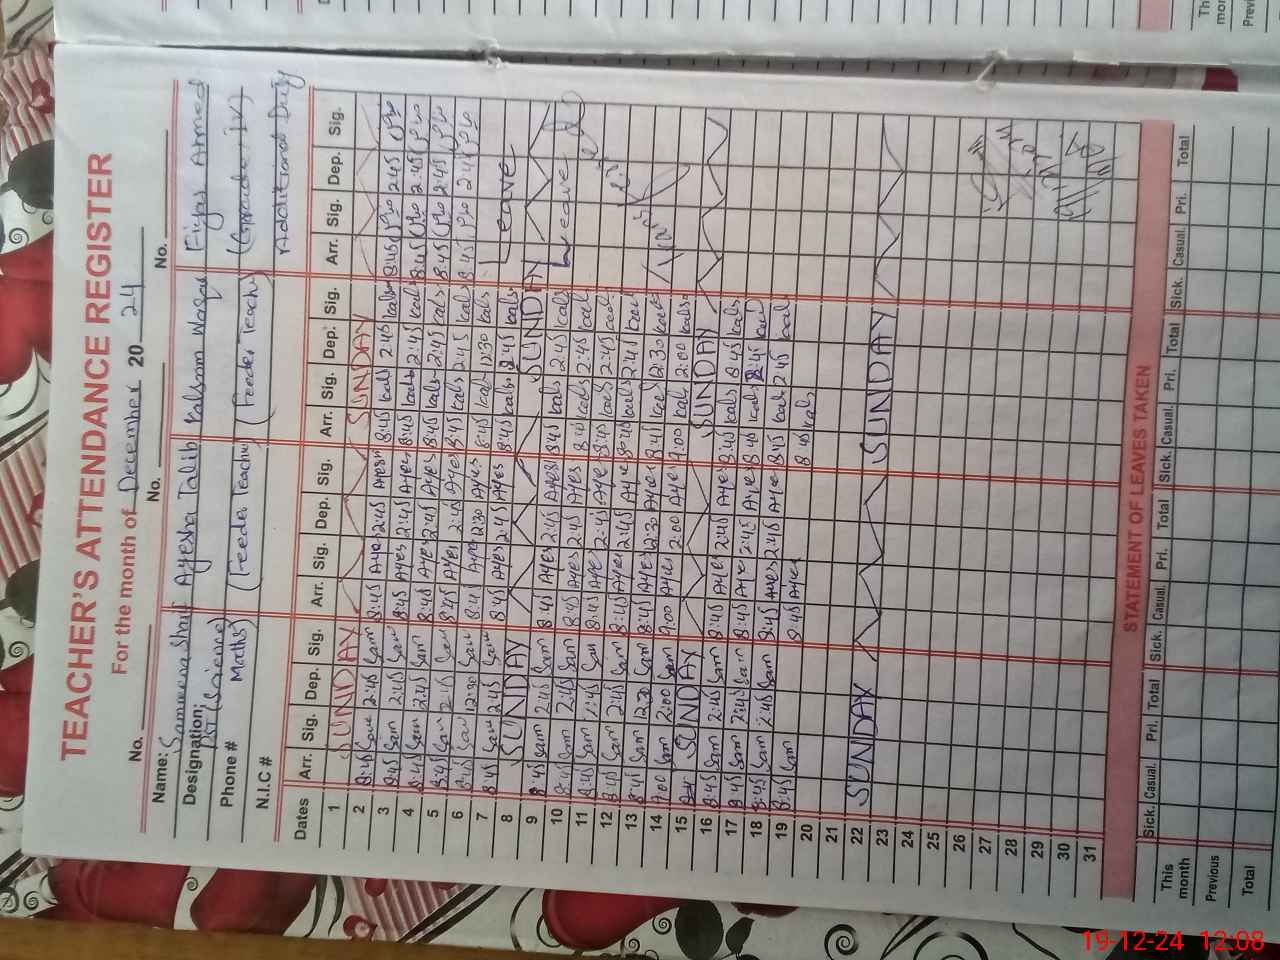 TEACHER'S ATTENDANCE REGISTER
For the month of December 20 24
No. No. No.
Name: Ayesha Talib Kalsom Fiyaz Ahmed
Designation; (Science) (Feeder Teacher) (Feeder Teacher)
Phone # Maths Additional Duty
N.I.C #
Dates Arr. Sig. Dep. Sig. Arr. Sig. Dep. Sig. Arr. Sig. Dep. Sig. Arr. Sig. Dep. Sig.
1 SUNDAY SUNDAY
2 8:45 Sam 2:45 Sam 8:45 Ayes 2:45 Ayes 8:45 Kals 2:45 Kals 8:45 2:45
3 8:45 Sam 2:45 Sam 8:45 Ayes 2:45 Ayes 8:45 Kals 2:45 Kals 8:45 2:45
4 8:45 Sam 2:45 Sam 8:45 Ayes 2:45 Ayes 8:45 Kals 2:45 Kals 8:45 2:45
5 8:45 Sam 2:45 Sam 8:45 Ayes 2:45 Ayes 8:45 Kals 2:45 Kals 8:45 2:45
6 8:45 Sam 12:30 Sam 8:45 Ayes 12:30 Ayes 8:45 Kals 12:30 Kals
7 8:45 Sam 2:45 Sam 8:45 Ayes 2:45 Ayes 8:45 Kals 2:45 Kals Leave
8 SUNDAY SUNDAY
9 8:45 Sam 2:45 Sam 8:45 Ayes 2:45 Ayes 8:45 Kals 2:45 Kals Leave
10 8:45 Sam 2:45 Sam 8:45 Ayes 2:45 Ayes 8:45 Kals 2:45 Kals
11 8:45 Sam 2:45 Sam 8:45 Ayes 2:45 Ayes 8:45 Kals 2:45 Kals
12 8:45 Sam 2:45 Sam 8:45 Ayes 2:45 Ayes 8:45 Kals 2:45 Kals
13 8:45 Sam 12:30 Sam 8:45 Ayes 12:30 Ayes 8:45 Kals 12:30 Kals
14 9:00 Sam 2:00 Sam 9:00 Ayes 2:00 Ayes 9:00 Kals 2:00 Kals
15 SUNDAY SUNDAY
16 8:45 Sam 2:45 Sam 8:45 Ayes 2:45 Ayes 8:45 Kals 2:45 Kals
17 8:45 Sam 2:45 Sam 8:45 Ayes 2:45 Ayes 8:45 Kals 2:45 Kals
18 8:45 Sam 2:45 Sam 8:45 Ayes 2:45 Ayes 8:45 Kals 2:45 Kals
19 8:45 Sam 8:45 Ayes 8:45 Kals
20
21
22 SUNDAY SUNDAY
23
24
25
26
27
28
29
30
31
STATEMENT OF LEAVES TAKEN
Sick. Casual. Pri. Total Sick. Casual. Pri. Total Sick. Casual. Pri. Total Sick. Casual. Pri. Total
This month
Previous
Total
19-12-24 12:08